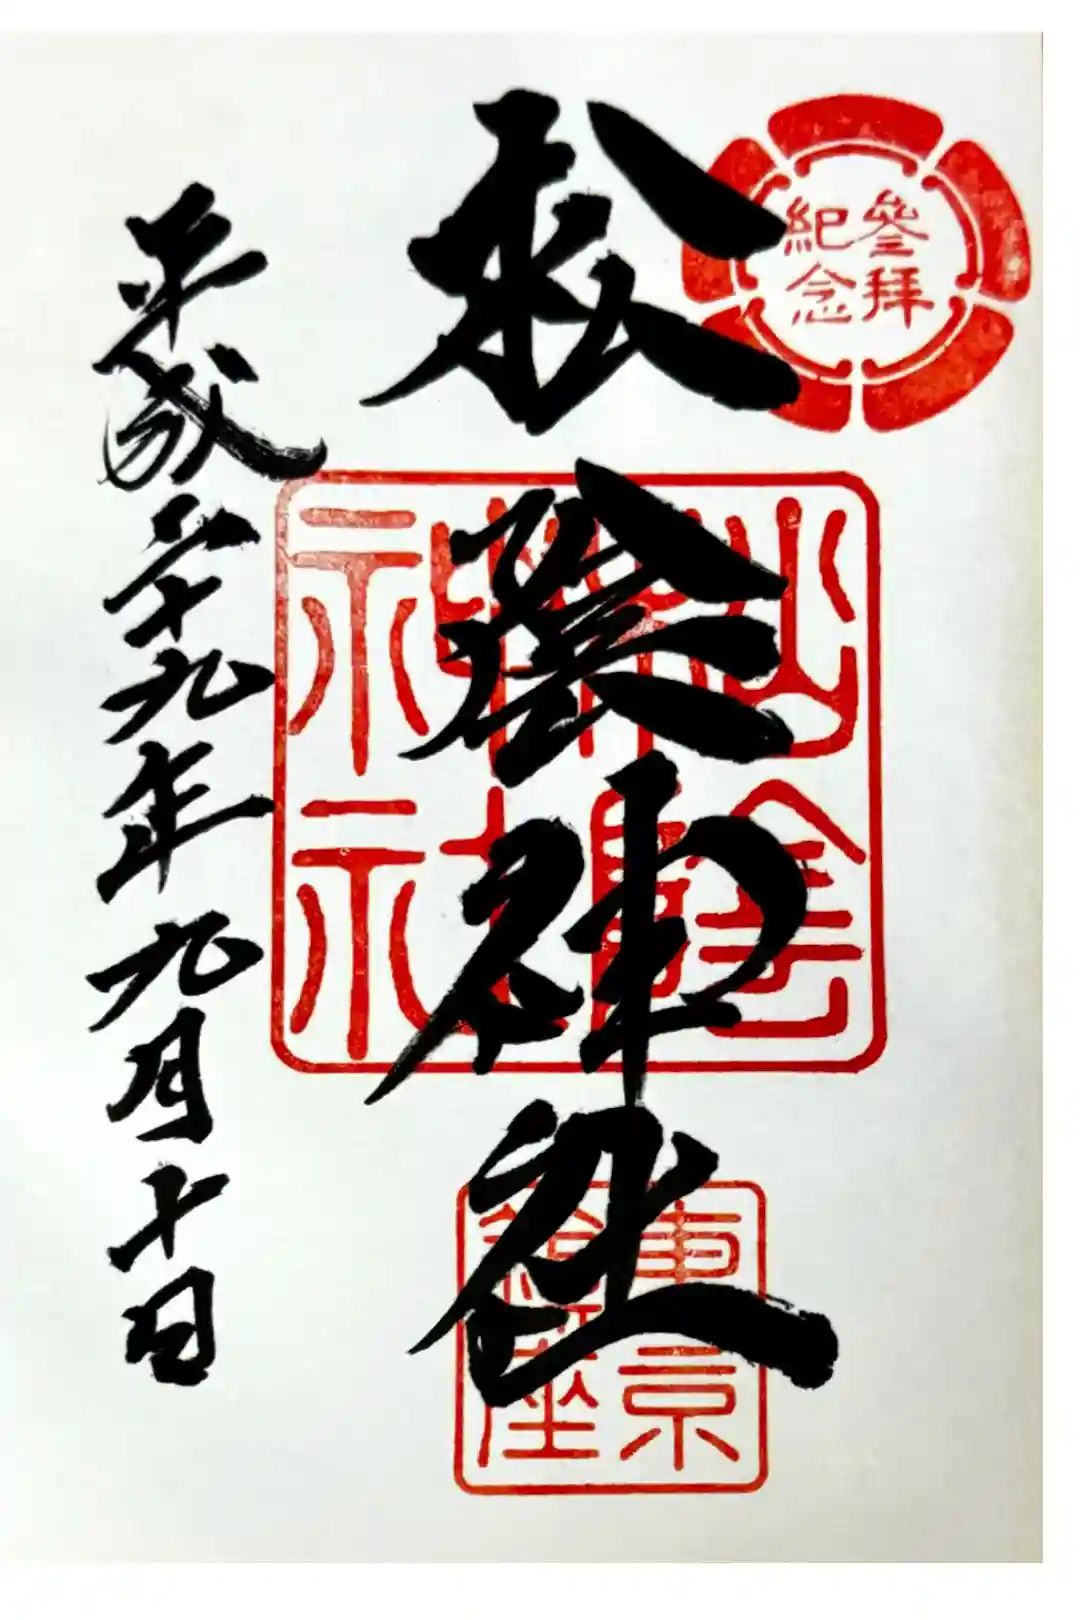 參拜
紀念
松陰神社
平成二十九年九月十日
松陰
神社
東京
鎮座